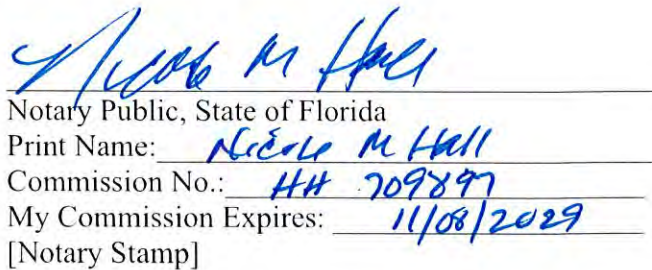 Nicole M Hall
Notary Public, State of Florida
Print Name: Nicole M Hall
Commission No.: HH 709897
My Commission Expires: 11/08/2029
[Notary Stamp]